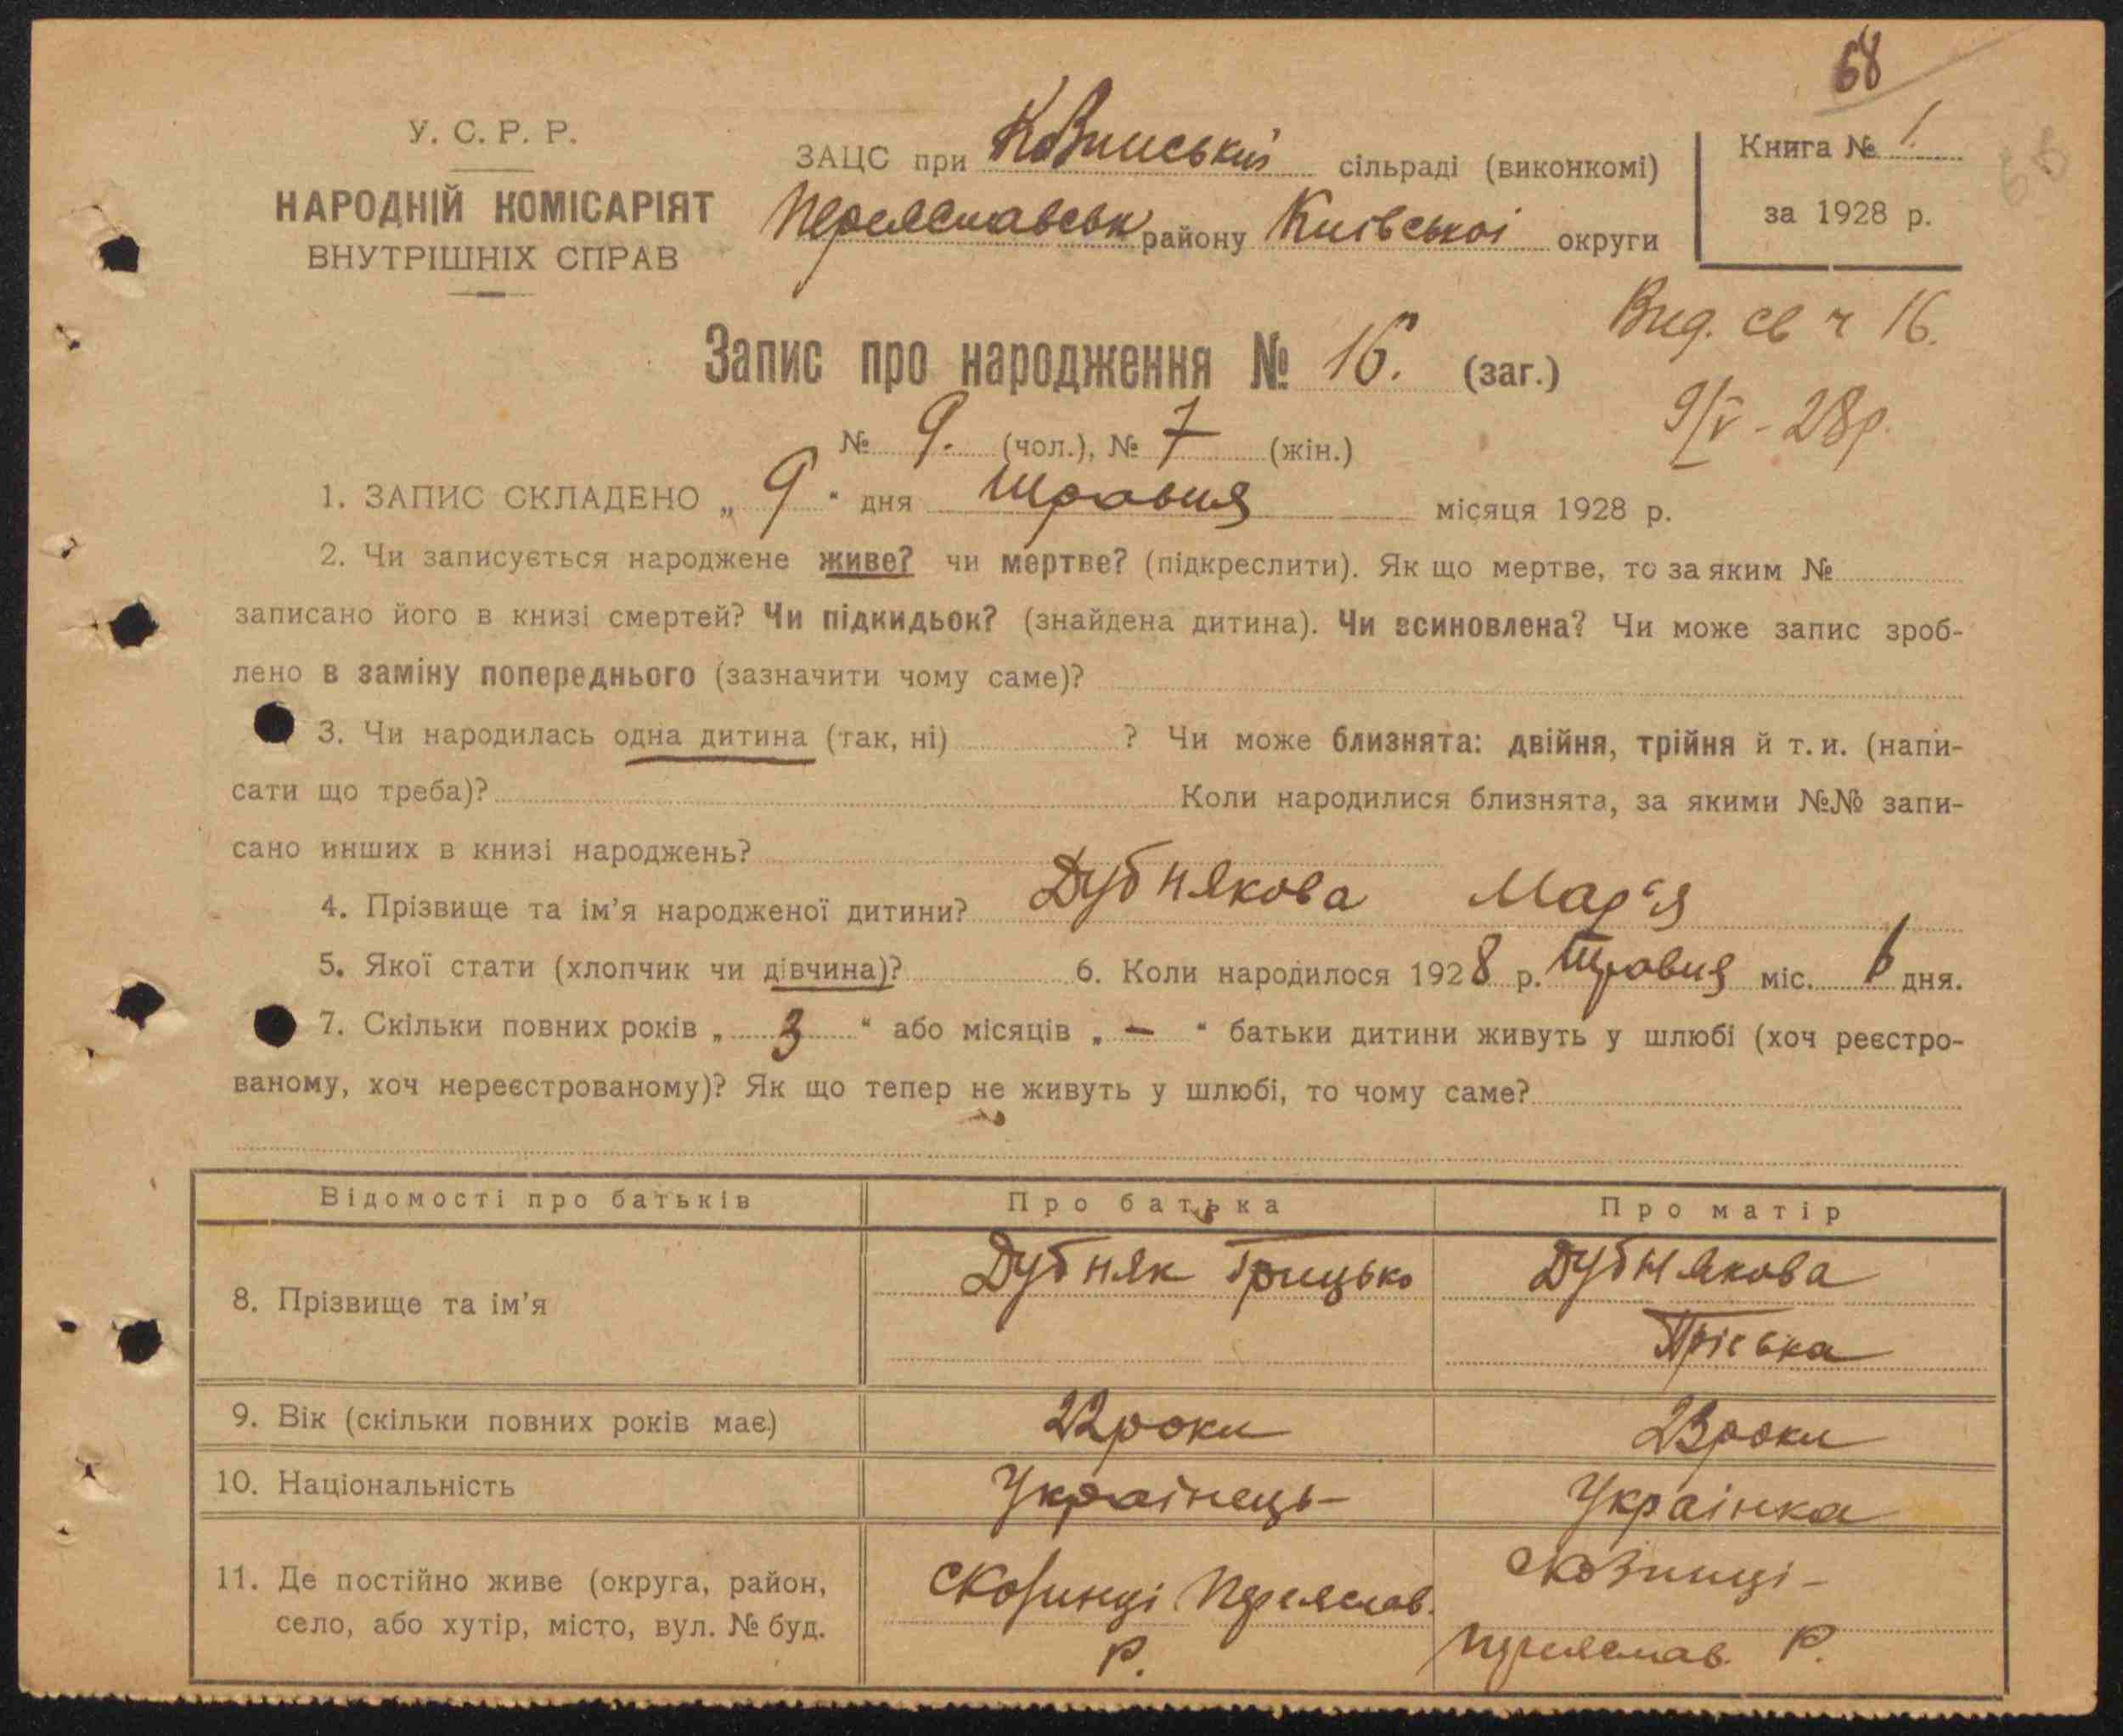 68
У. С. Р. Р.
НАРОДНІЙ КОМІСАРІЯТ
ВНУТРІШНІХ СПРАВ
ЗАЦС при Козинській сільраді (виконкомі)
Переяславськ району Київської округи
Книга № 1
за 1928 р.
Запис про народження № 16. (заг.)
Вид. св ч 16.
9/V - 28р.
№ 9. (чол.), № 7 (жін.)
1. ЗАПИС СКЛАДЕНО „ 9 “ дня травня місяця 1928 р.
2. Чи записується народжене живе? чи мертве? (підкреслити). Як що мертве, то за яким №
записано його в книзі смертей? Чи підкидьок? (знайдена дитина). Чи всиновлена? Чи може запис зроб-
лено в заміну попереднього (зазначити чому саме)?
3. Чи народилась одна дитина (так, ні) ? Чи може близнята: двійня, трійня й т. и. (напи-
сати що треба)? Коли народилися близнята, за якими №№ запи-
сано инших в книзі народжень?
4. Прізвище та ім’я народженої дитини? Дубнякова Мар'я
5. Якої стати (хлопчик чи дівчина)? 6. Коли народилося 1928 р. травня міс. 6 дня.
7. Скільки повних років „ 3 “ або місяців „ — “ батьки дитини живуть у шлюбі (хоч реєстро-
ваному, хоч нереєстрованому)? Як що тепер не живуть у шлюбі, то чому саме?
Відомості про батьків Про батька Про матір
8. Прізвище та ім’я Дубняк Грицько Дубнякова
Пріська
9. Вік (скільки повних років має) 22 роки 23 роки
10. Національність Українець Українка
11. Де постійно живе (округа, район,
село, або хутір, місто, вул. № буд.
с Козинці Переяслав.
Р.
с Козинці
Переяслав Р.